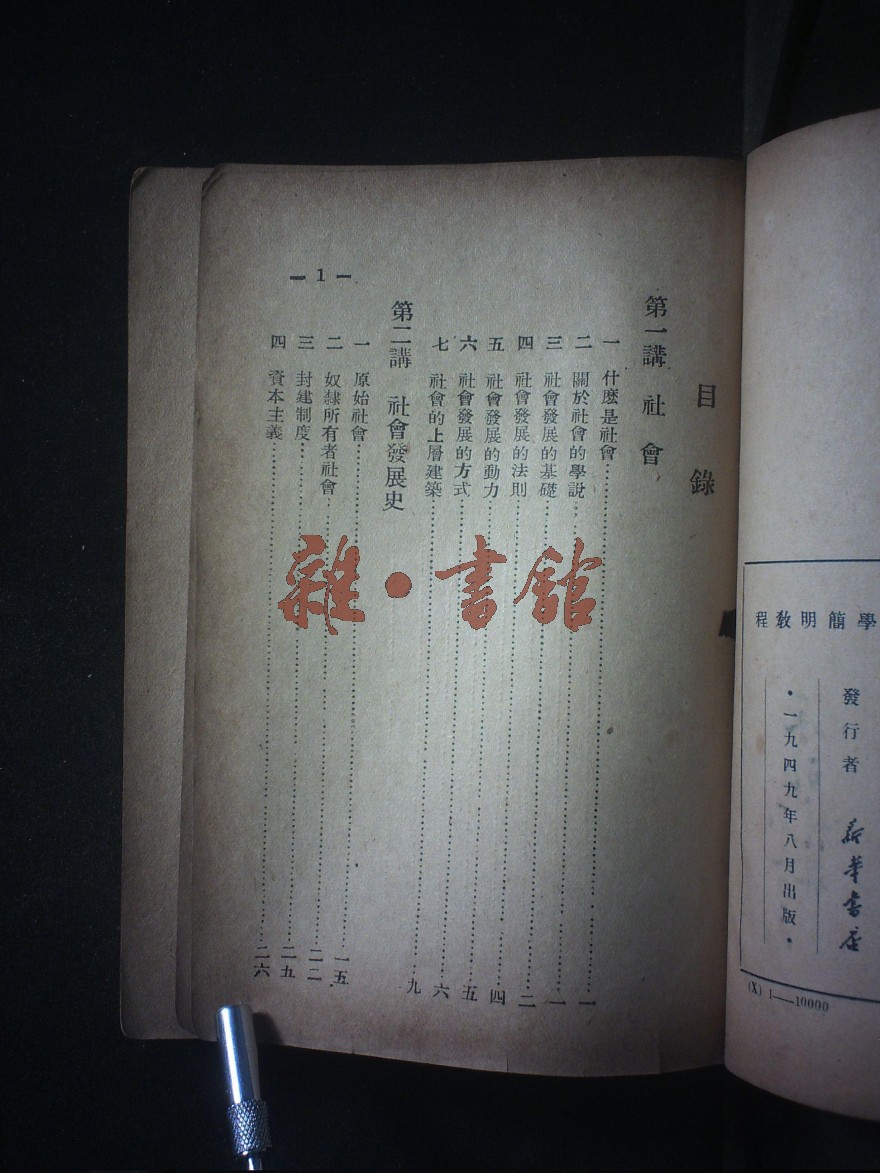 學簡明教程
發行者 新華書店
•一九四九年八月出版•
(X) 1——10000
目錄
第一講 社會
一 什麼是社會……一
二 關於社會的學說……一
三 社會發展的基礎……二
四 社會發展的法則……四
五 社會發展的動力……五
六 社會發展的方式……六
七 社會的上層建築……九
第二講 社會發展史
一 原始社會……一五
二 奴隸所有者社會……二二
三 封建制度……二五
四 資本主義……二六
— 1 —
雜•書館